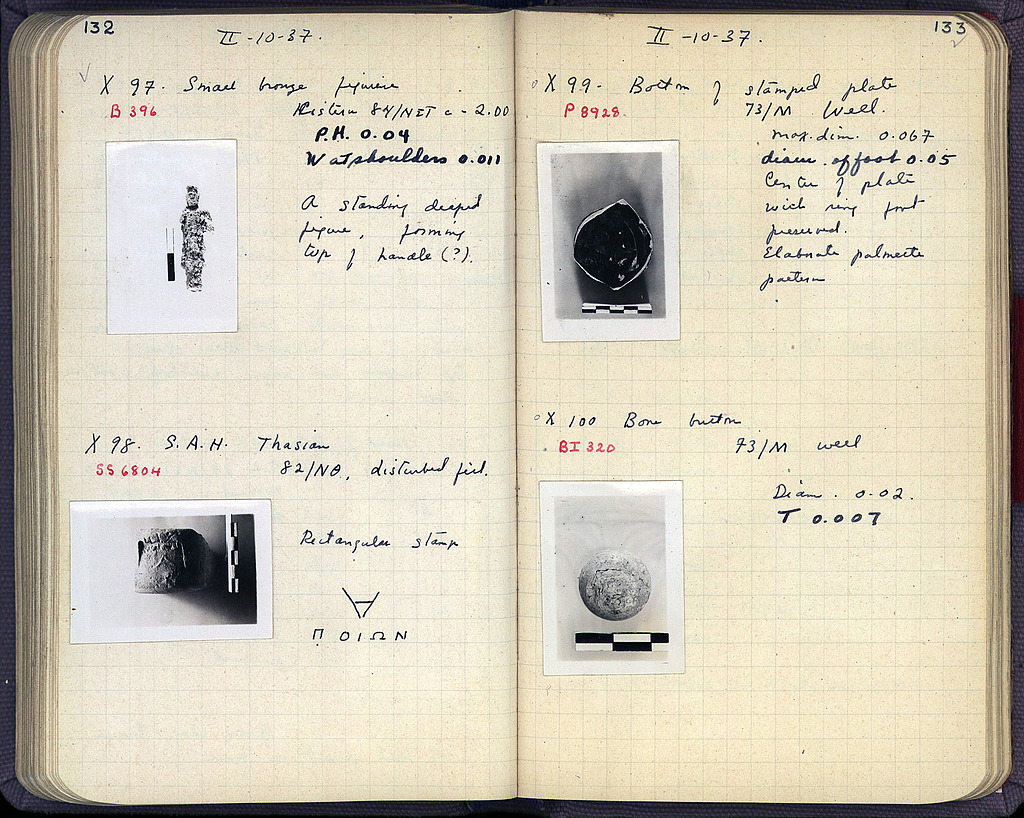 132
II -10-37.
X 97. Small bronze figurine
B 396
Cistern 84/ΝΣΤ c - 2.00
P.H. 0.04
W at shoulders 0.011
A standing draped
figure, forming
top of handle (?).
X 98. S.A.H. Thasian
SS 6804
82/ΝΘ, disturbed fill.
Rectangular stamp
ΠΟΙΩΝ
133
II -10-37.
X 99. Bottom of stamped plate
P 8928
73/Μ Well.
max. dim. 0.067
diam. of foot 0.05
Center of plate
with ring foot
preserved.
Elaborate palmette
pattern
X 100 Bone button
BI 320
73/Μ well
Diam. 0.02.
T 0.007